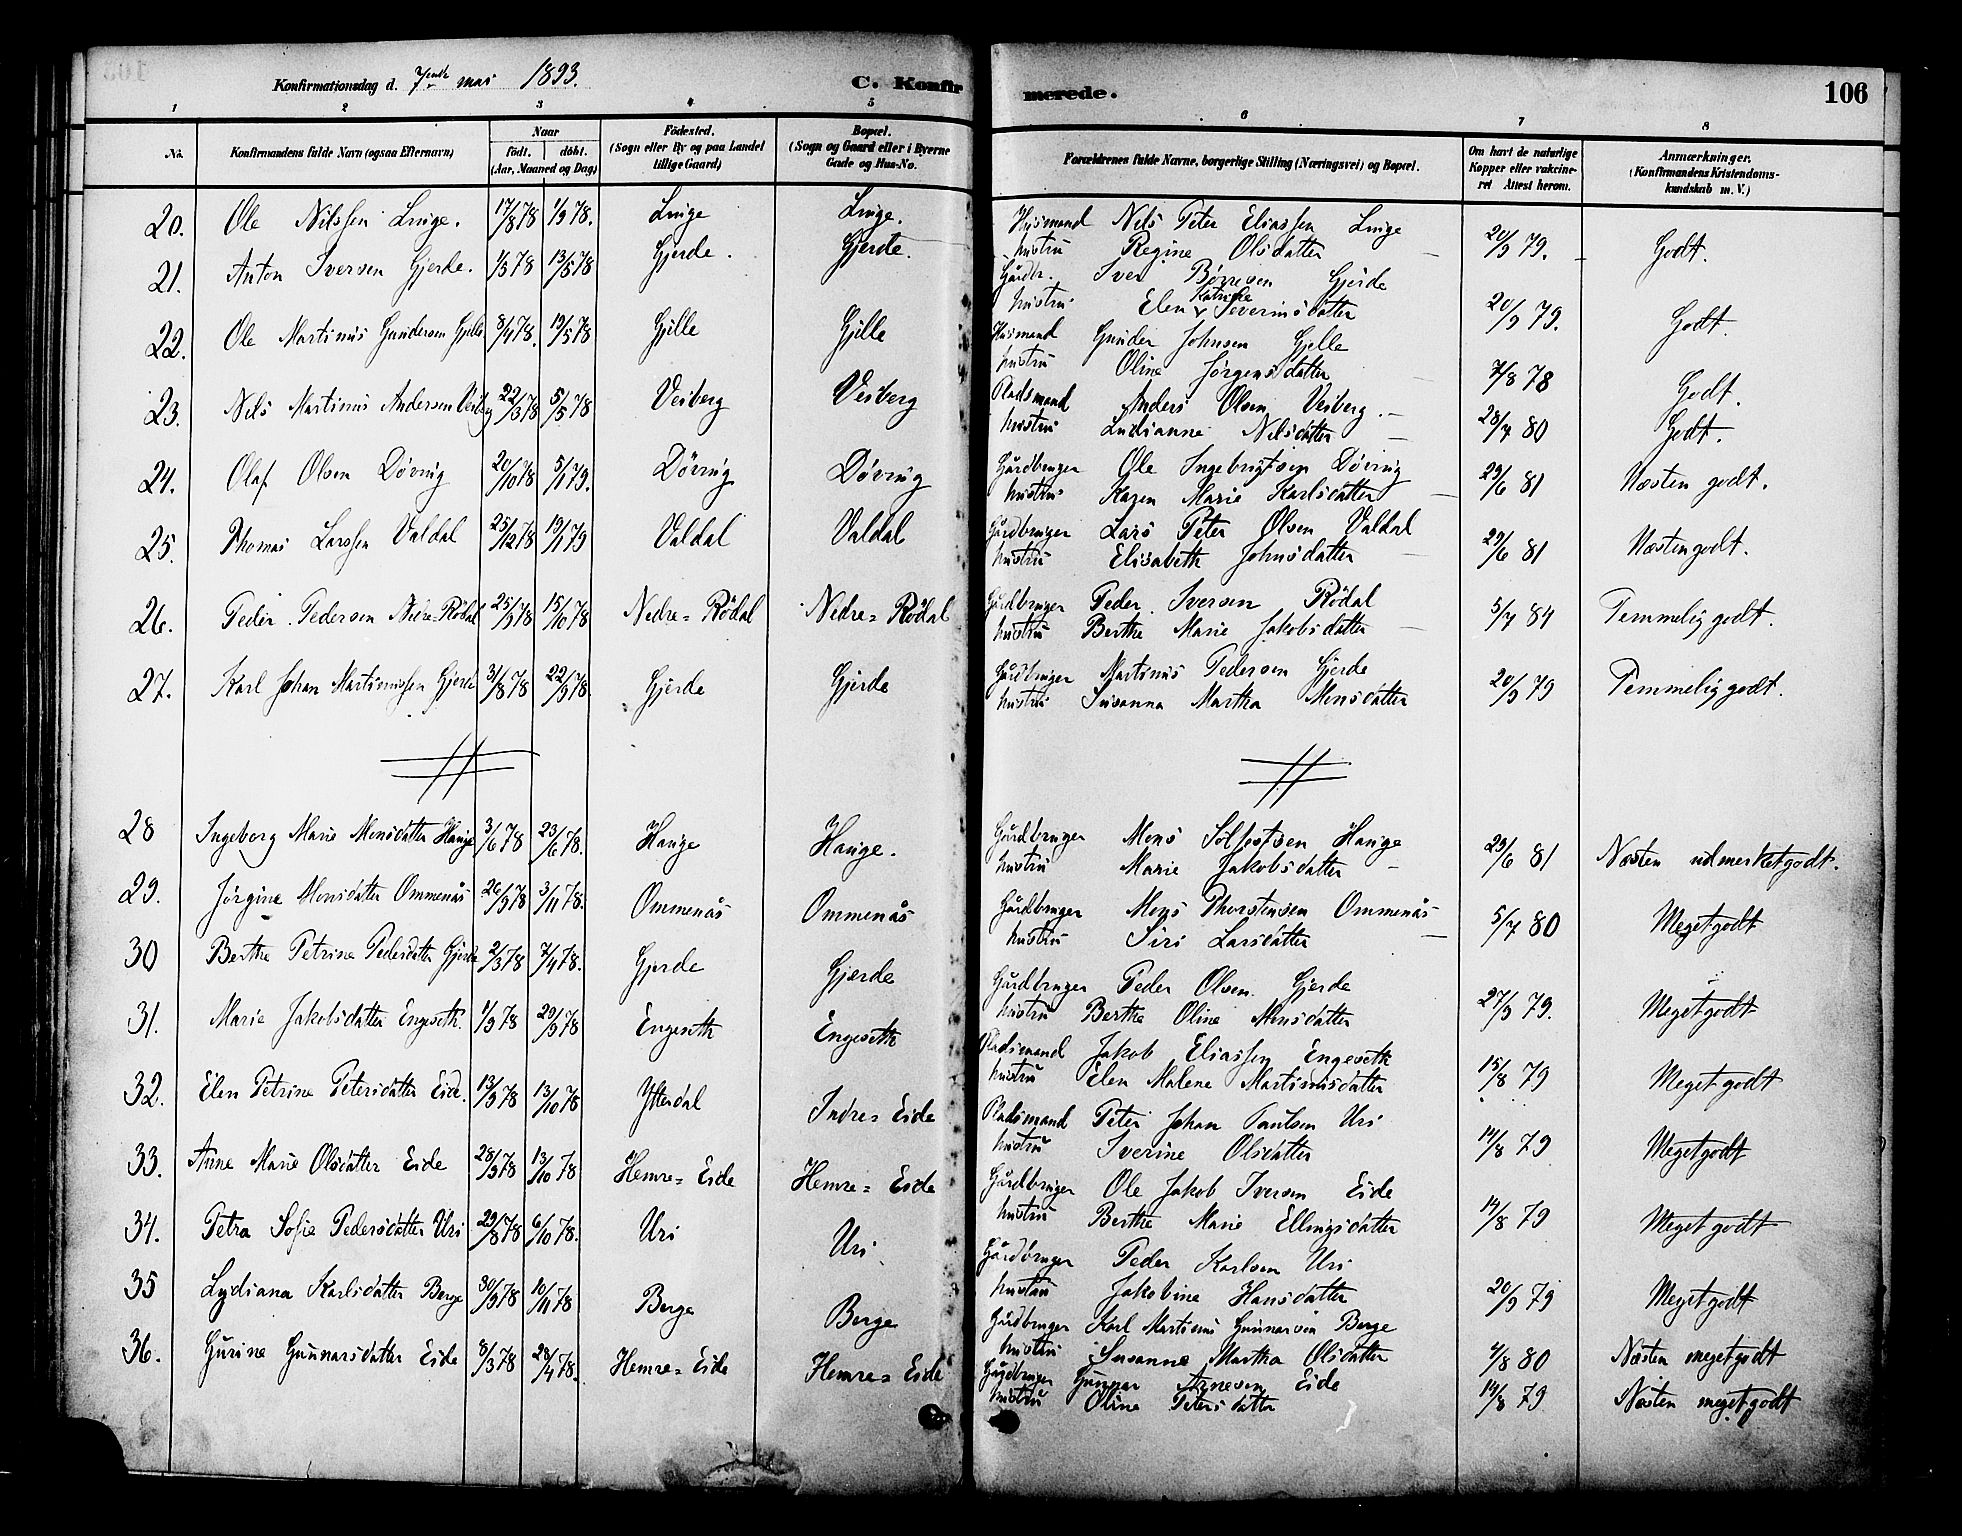 Konfirmationsdag d. 7de mai 1893.
C. Konfirmerede.
106
1 2 3 4 5 6 7 8
No.
Konfirmandens fulde Navn (ogsaa Efternavn)
Naar
født. døbt.
(Aar, Maaned og Dag)
Födested.
(Sogn eller By og paa Landet tillige Gaard)
Bopæl.
(Sogn og Gaard eller i Byerne Gade og Hus-No.
Forældrenes fulde Navne, borgerlige Stilling (Næringsvei) og Bopæl.
Om havt de naturlige Kopper eller vakcineret Attest herom.
Anmærkninger.
(Konfirmandens Kristendomskundskab m. V.)
20. Ole Nilssen Linge. 17/8 78 1/9 78. Linge Linge. Husmand Nils Peter Eliassen Linge
hustru Regine Olsdatter 20/9 79. Godt.
21. Anton Iversen Gjerde. 1/5 78 13/5 78 Gjerde. Gjerde. Gårdbr. Iver Børresen Gjerde
hustru Elen Katrine Severinsdatter 20/9 79. Godt.
22. Ole Martinus Gundersen Gjelle 8/4 78. 19/5 78 Gjelle Gjelle Husmand Gunder Johnsen Gjelle
hustru Oline Jörgensdatter 7/8 78 Godt.
23. Nils Martinus Andersen Veiberg 22/3 78 5/5 78 Veiberg Veiberg Pladsmand Anders Olsen Veiberg.
hustru Lydianne Nilsdatter 28/7 80 Godt.
24. Olaf Olsen Döving 20/10 78 5/1 79. Döving Döving Gårdbruger Ole Ingebrigtsen Döving
hustru Karen Marie Karlsdatter 29/6 81 Næsten godt.
25. Thomas Larssen Valdal 25/12 78 19/1 79 Valdal Valdal Gårdbruger Lars Peter Olsen Valdal
hustru Elisabeth Johnsdatter 29/6 81 Næsten godt.
26. Peder Pedersen Nedre-Rödal 25/9 78 15/10 78 Nedre=Rödal Nedre=Rödal Gårdbruger Peder Iversen Rödal
hustru Berthe Marie Jakobsdatter 5/7 84 Temmelig godt.
27. Karl Johan Martinussen Gjerde 31/8 78 22/9 78. Gjerde Gjerde Gårdbruger Martinus Pedersen Gjerde
hustru Susanna Martha Monsdatter 20/9 79 Temmelig godt.
28 Ingeborg Marie Monsdatter Hauge 3/6 78 23/6 78. Hauge Hauge. Gårdbruger Mons Solfestsen Hauge
hustru Marie Jakobsdatter 29/6 81 Næsten udmerket godt.
29. Jørgine Monsdatter Ommenås 26/9 78 3/11 78. Ommenås Ommenås Gårdbruger Mons Thorstensen Ommenås
hustru Siri Larsdatter 5/7 80 Meget godt
30 Berthe Petrine Pedersdatter Gjerde 2/3 78 7/4 78. Gjerde Gjerde Gårdbruger Peder Olsen Gjerde
hustru Berthe Oline Monsdatter 27/9 79. Meget godt
31. Marie Jakobsdatter Engeseth. 1/9 78 29/9 78 Engeseth Engeseth Pladsmand Jakob Eliassen Engeseth
hustru Elen Malene Martinusdatter 15/8 79 Meget godt
32. Elen Petrine Petersdatter Eide. 13/9 78 13/10 78 Ytterdal Indre=Eide Pladsmand Peter Johan Paulsen Uri
hustru Iverine Olsdatter 14/8 79 Meget godt
33. Anne Marie Olsdatter Eide 28/9 78 13/10 78 Hemre=Eide Hemre=Eide Gårdbruger Ole Jakob Iversen Eide
hustru Berthe Marie Ellingsdatter 14/8 79 Meget godt
34. Petra Sofie Pedersdatter Uri 29/8 78 6/10 78. Uri Uri Gårdbruger Peder Karlsen Uri
hustru Jakobine Hansdatter 20/9 79 Meget godt
35 Lydiana Karlsdatter Berge 30/9 78 10/11 78 Berge Berge Gårdbruger Karl Martinus Gunnarsen Berge
hustru Susanne Martha Olsdatter 4/8 80 Næsten meget godt
36. Gurine Gunnarsdatter Eide 8/3 78 28/4 78. Hemre=Eide Hemre=Eide Gårdbruger Gunnar Arnesen Eide
hustru Oline Petersdatter 14/8 79 Næsten meget godt